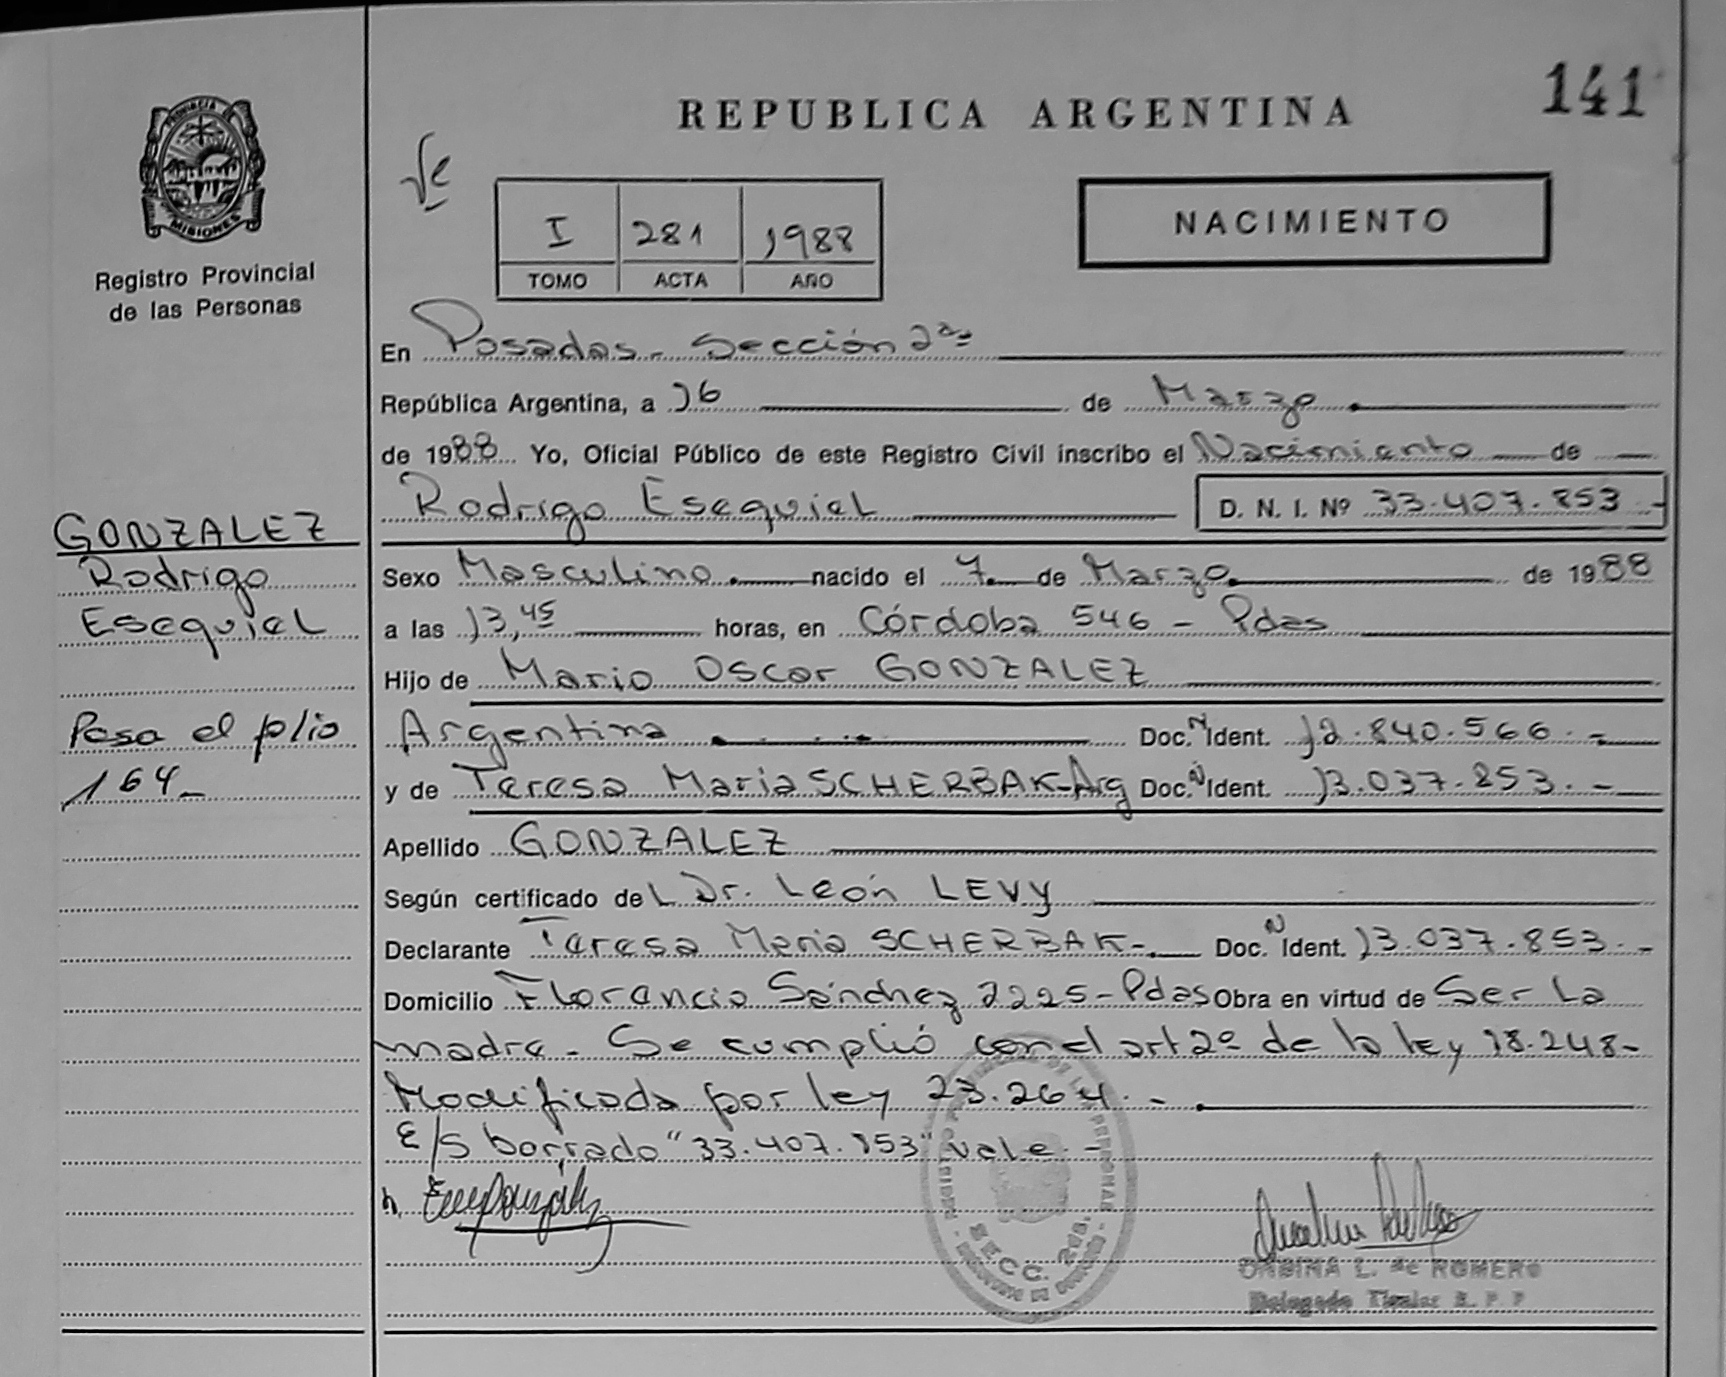 141
REPUBLICA ARGENTINA
PROVINCIA
MISIONES
Registro Provincial
de las Personas
I 281 1988
TOMO ACTA AÑO
NACIMIENTO
En Posadas - Sección 2da
República Argentina, a 16 de Marzo
de 1988 Yo, Oficial Público de este Registro Civil inscribo el Nacimiento de
Rodrigo Esequiel D. N. I. Nº 33.407.853
GONZALEZ
Rodrigo
Esequiel
Pasa al folio
164
Sexo Masculino nacido el 7 de Marzo de 1988
a las 13,45 horas, en Córdoba 546 - Pdas
Hijo de Mario Oscar GONZALEZ
Argentina Doc. N Ident. 12.840.566.-
y de Teresa Maria SCHERBAK-Arg Doc. N Ident. 13.037.853.-
Apellido GONZALEZ
Según certificado de L Dr. León LEVY
Declarante Teresa Maria SCHERBAK- Doc. N Ident. 13.037.853.-
Domicilio Florencio Sánchez 2225-Pdas Obra en virtud de Ser La
madre - Se cumplió con el art 2º de la ley 18.248-
Modificada por ley 23.264.-
E/S borrado "33.407.853" vale.-
SECC. 2da.
L. de ROMERO
Delegado Titular R. P. P